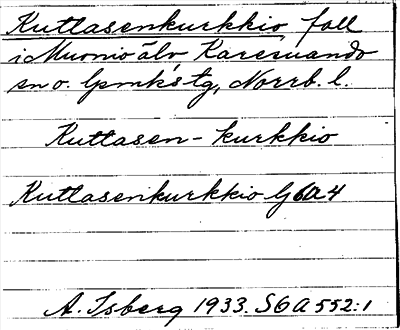 Kuttasenkurkkio, fall
i Muonio älv Karesuando
sn o. lpmks tg, Norrb. l.
Kuttasen - kurkkio
Kuttasenkurkkio lj 6a4
A. Isberg 1933. S6A552:1